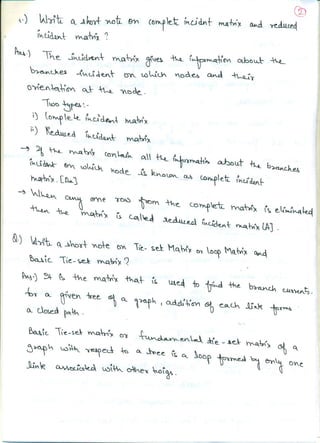 5
1) Write a short note on complete incident matrix and reduced
incident matrix ?
Ans:) The incident matrix gives the information about the
branches incident on which nodes and their
orientation at the node.
Two types:-
i) Complete incident matrix
ii) Reduced incident matrix
→ If the matrix contain all the information about the branches
incident on which node is known as complete incident
matrix. [Aa]
→ When any one row from the complete matrix is eliminated
then the matrix is called reduced incident matrix [A].
Q) Write a short note on Tie-set Matrix or loop Matrix and
Basic Tie-set matrix ?
Ans:) It is the matrix that is used to find the branch currents.
for a given tree of a graph, addition of each link forms
a closed path.
Basic Tie-set matrix or fundamental tie-set matrix of a
graph with respect to a tree is a loop formed by only one
link associated with other twigs.